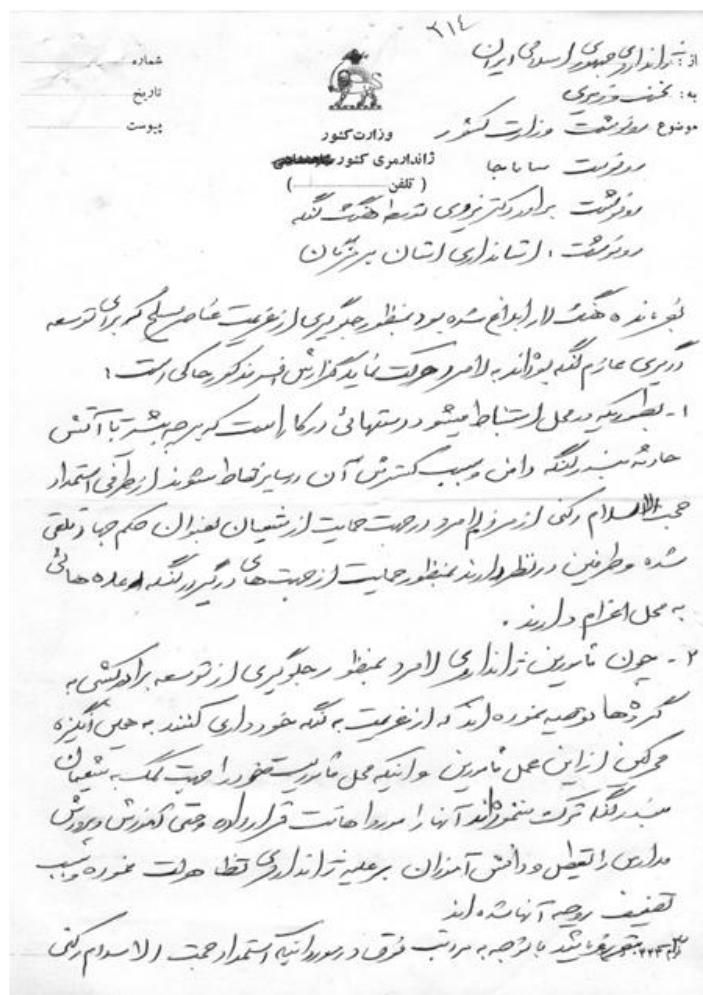 ۳۱٤
از: ژاندارمری جمهوری اسلامی ایران
به: نخست وزیری
موضوع رونوشت وزارت کشور
شماره
تاریخ
پیوست
وزارت کشور
ژاندارمری کشور
( تلفن )
رونوشت ساماجا
رونوشت برادر دکتر یزدی توسط هنگ لنگه
رونوشت: استانداری استان هرمزگان
بفرمانده هنگ لار ابلاغ شده بود بمنظور جلوگیری از عزیمت عناصر مسلح که برای توسعه
درگیری عازم لنگه بوده‌اند به لامرد حرکت نماید گزارش افسر مذکور حاکی است:
۱- بطوریکه در محل استنباط میشود دستهائی در کار است که هر چه بیشتر با آتش
حادثه بندر لنگه دامن و سبب گسترش آن در سایر نقاط شوند از طرفی استمداد
حجت الاسلام رکنی از مردم لامرد در جهت حمایت از شیعیان بعنوان حکم جهاد تلقی
شده و طرفین در نظر دارند بمنظور حمایت از جبهت های درگیر در لنگه عده هائی
به محل اعزام دارند.
۲- چون مامورین ژاندارمری لامرد بمنظور جلوگیری از توسعه برادر کشی به
گروهها توصیه نموده اند که از عزیمت به لنگه خودداری کنند به همین انگیزه
محرکین از این عمل مامورین و اینکه محل ماموریت خود را جهت کمک به شیعیان
بندر لنگه ترک ننموده‌اند آنها را مورد اهانت قرار داده و حتی آموزش و پرورش
مدارس را تعطیل و دانش آموزان بر علیه ژاندارمری تظاهرات نموده و سبب
تضعیف روحیه آنها شده اند
با توجه به مراتب فوق در صورتیکه استمداد حجت الاسلام رکنی